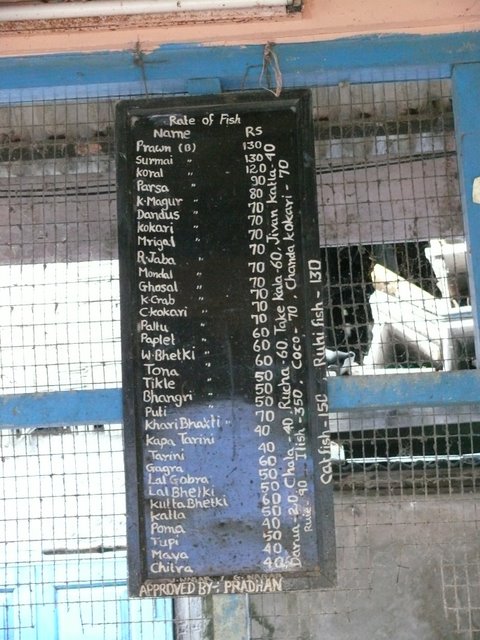 Rate of Fish
Name RS
Prawn (B) 130
Surmai " 130
Koral " 120
Parsa " 90
K.Magur 80
Dandus " 70
Kokari " 70
Mrigal " 70
R.Jaba " 70
Mondal " 70
Ghosal " 70
K.Crab " 70
C.Kokari " 70
Paltu " 70
Paplet " 60
W.Bhetki " 60
Tona " 60
Tikle " 50
Bhangri " 50
Puti " 50
Khari Bhakti " 70
Kapa Tarini 40
Tarini 40
Gagra 60
Lal Gobra 50
Lal Bhetki 50
Kutta Bhetki 60
Katla 50
Poma 40
Tupi 50
Maya 40
Chitra 40
Darua-20, Chala-40 Rucha-60, Take kala-60, Jivan Katla-40
Rule-90 - Ilisk-350, Coco-70, Chanda kokari-70
Catfish-150, Ruhi fish-130
APPROVED BY:- PRADHAN